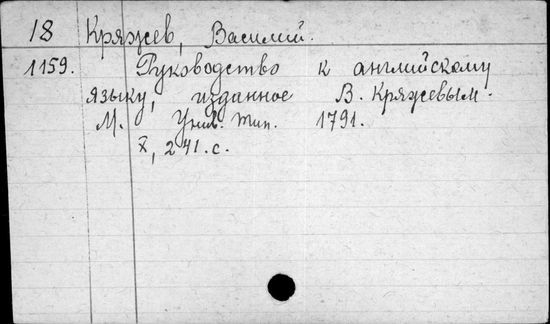 18 Кряжев, Василий.
1159. Руководство к английскому
языку, изданное В. Кряжевым.
М. Унив. тип. 1791.
X, 241. с.